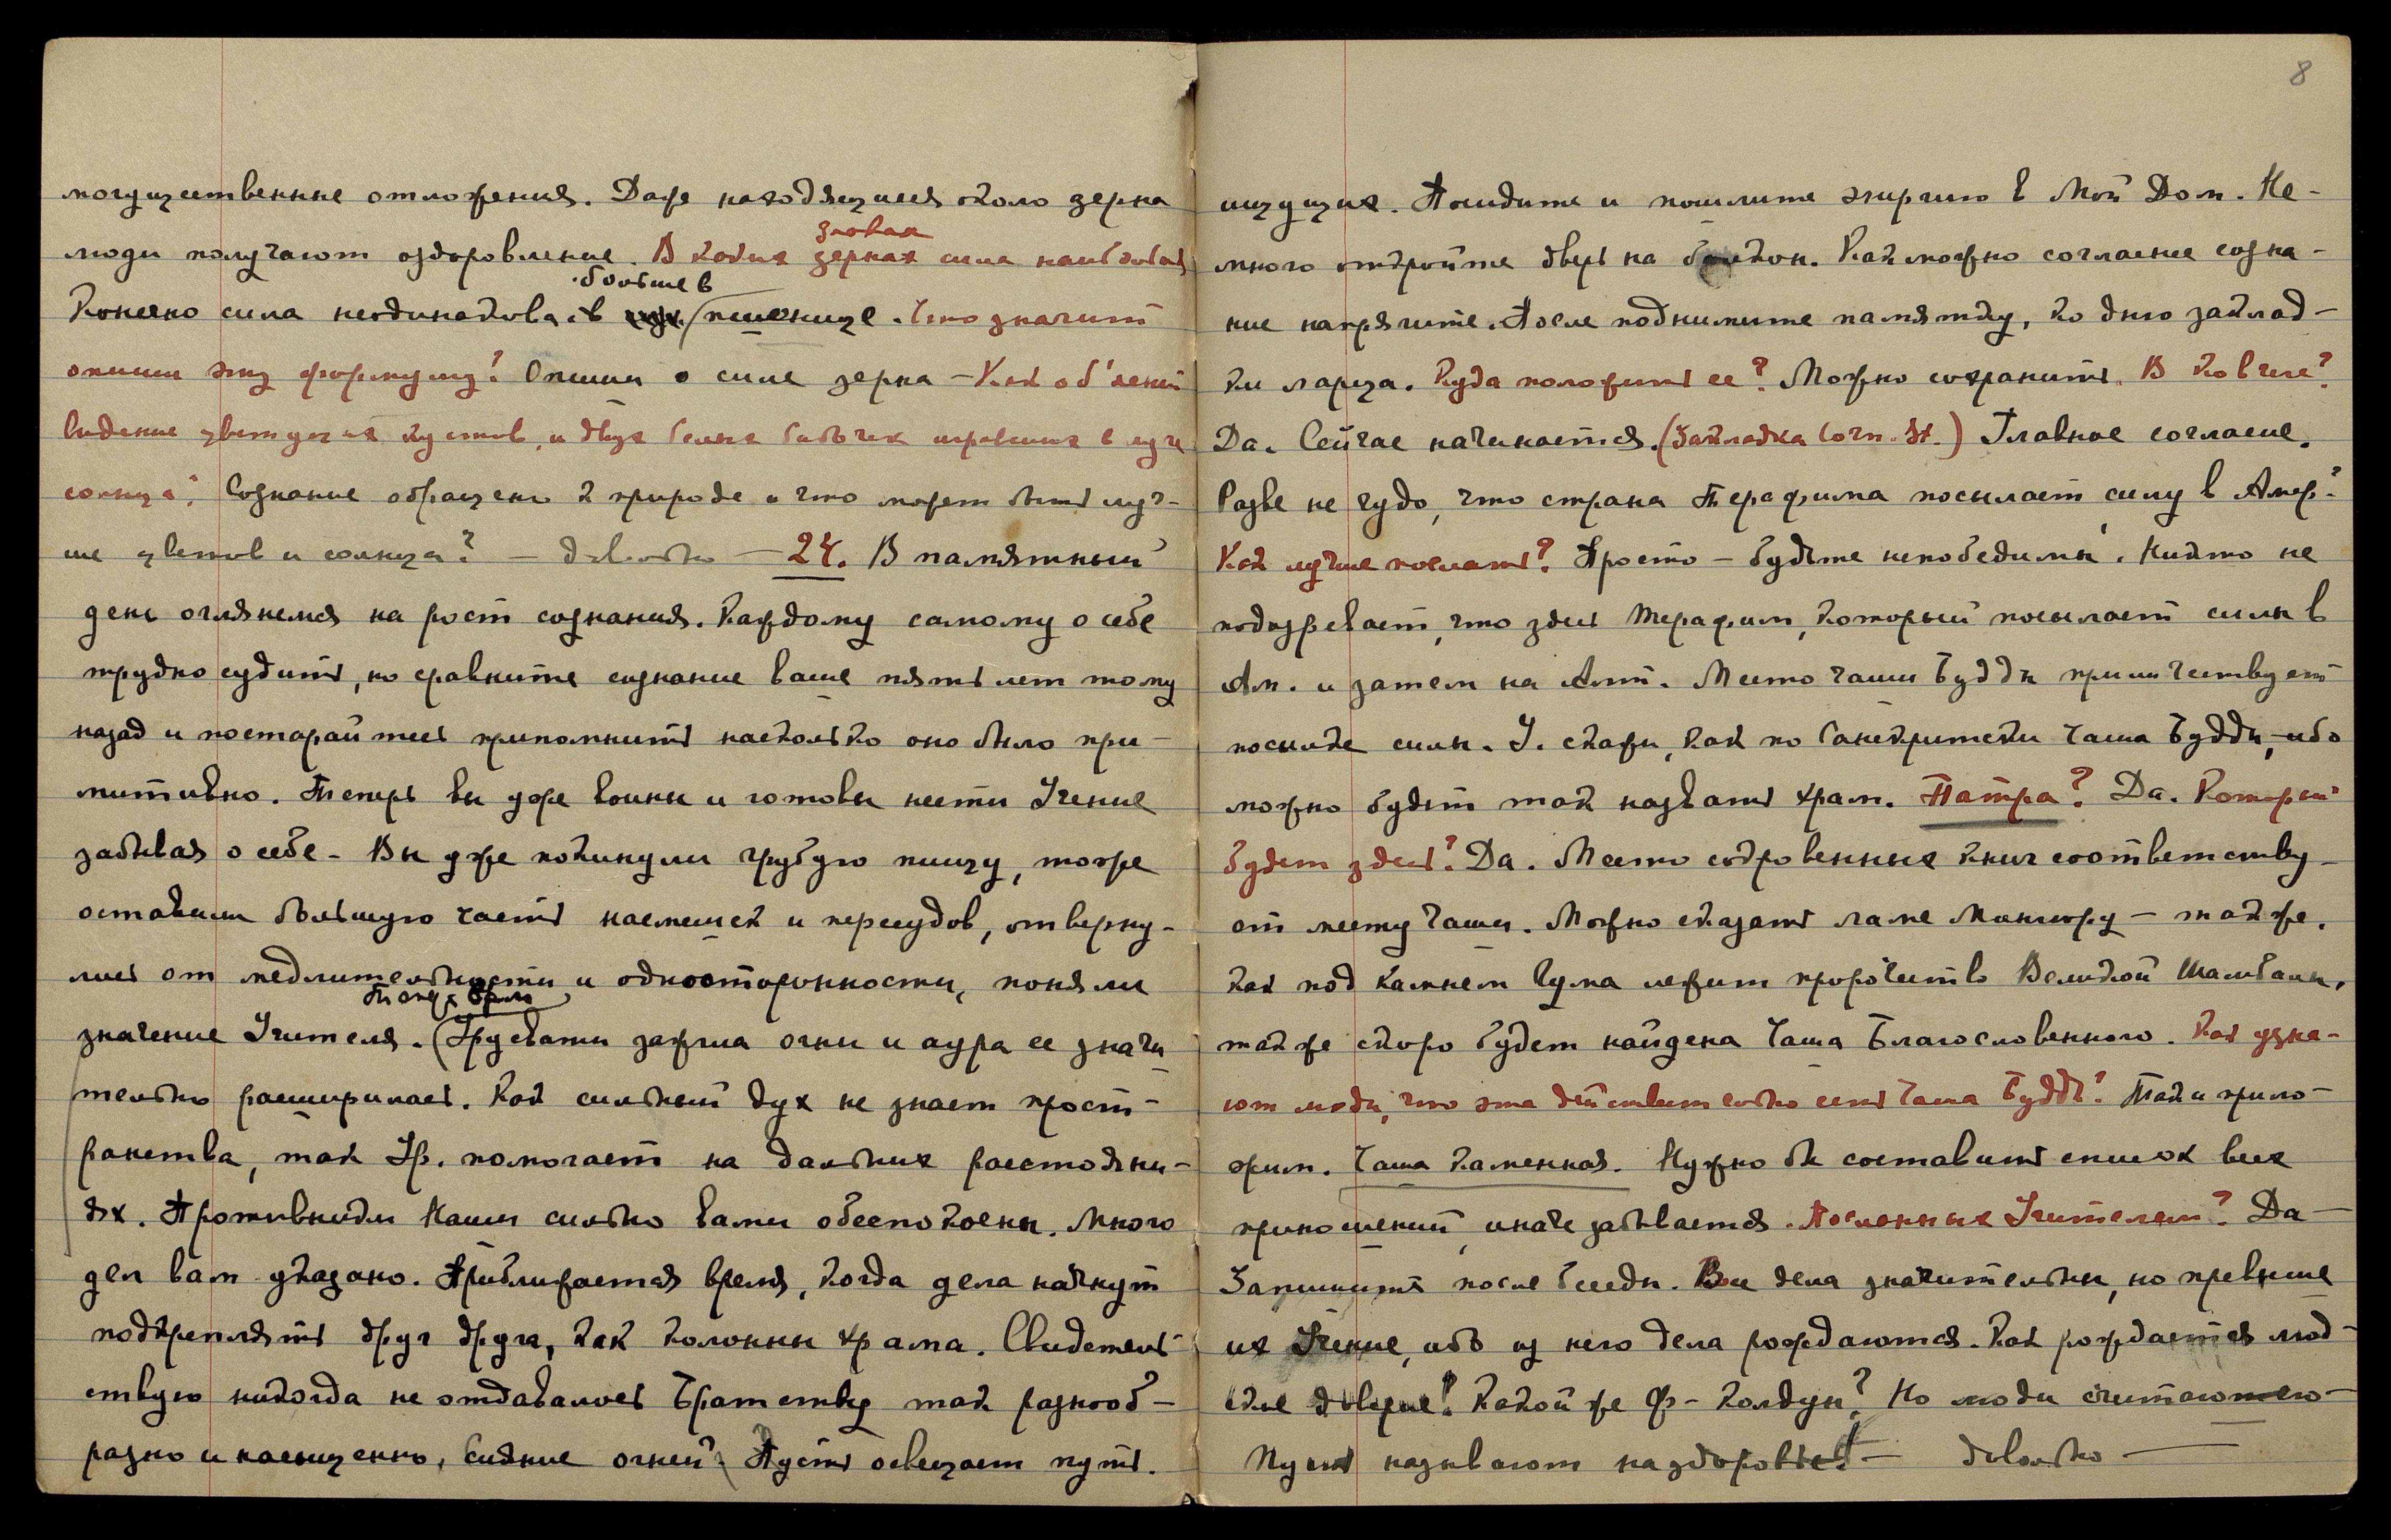 могущественные отложения. Даже находящиеся около зерна
люди получают оздоровление. В каких зерная сила наибольшая
злаках
больше в
Конечно сила неодинакова, в пшенице. Что значит
опиши эту формулу? Опиши о силе зерна — Как об'яснить
видение цветущих кустов, и двух белых бабочек игравших в луче
солнца? Сознание обращено к природе и что может быть луч-
ше цветов и солнца? — довольно — 24. В памятный
день оглянемся на рост сознания. Каждому самому о себе
трудно судить, но сравните сознание ваше пять лет тому
назад и постарайтесь припомнить насколько оно было при-
митивно. Теперь вы уже воины и готовы нести Учение
забывая о себе. Вы уже покинули грубую пищу, тоже
оставили большую часть насмешек и пересудов, отверну-
лись от медлительности и односторонности, поняли
значение Учителя. (Урусвати зажгла огни и аура ее значи
тельно расширилась. Как сильный дух не знает прост-
ранства, так Ур. помогает на дальних расстояни-
ях. Противники Наши сильно вами обеспокоены. Много
дел вам указано. Приближается время, когда дела начнут
подкреплять друг друга, как колонны храма. Свидетель-
ствую никогда не отдавалось Братству так разнооб-
разно и насыщенно, сияние огней) Пусть освещает путь.
8
ищущих. Посидите и пошлите энергию в Мой Дом. Не-
много откройте дверь на балкон. Как можно согласнее созна-
ние напрягите. После поднимите памятку, ко дню заклад-
ки ларца. Куда положить ее? Можно сохранить. В Ковчеге?
Да. Сейчас начинается. (Закладка Corn. St.) Главное согласие.
Разве не чудо, что страна Терафима посылает силу в Амер.?
Как лучше послать? Просто — будьте непобедимы. Никто не
подозревает, что здесь терафим, который посылает силы в
Ам. и затем на Алт. Место чаши Будды приличествует
посылке силы. У. скажи, как по Санскритски Чаша Будды, ибо
можно будет так назвать храм. Патра? Да. Который
будет здесь? Да. Место сокровенных книг соответству-
ет месту Чаши. Можно сказать ламе Мингюру — также.
как под камнем Гума лежит пророчество Великой Шамбалы,
также скоро будет найдена Чаша Благословенного. Как узна-
ют люди, что это действительно есть Чаша Будды? Так и прило-
жим. Чаша Каменная. Нужно бы составить список всех
приношений, иначе забывается. Посланных Учителем? Да —
Запишите после беседы. Все дела значительны, но превыше
их Учение, ибо из него дела рождаются. Как рождается люд-
ское доверие? Какой же Ф- колдун? Но люди считают его —
Пусть называют на здоровье! — довольно —